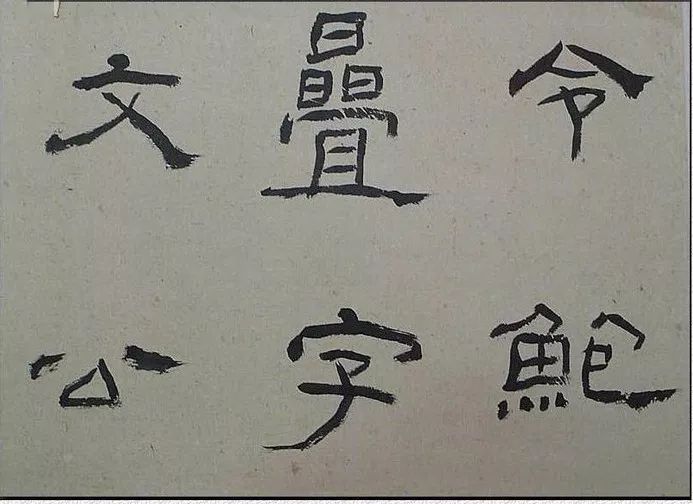 令鲍
疊字
文公